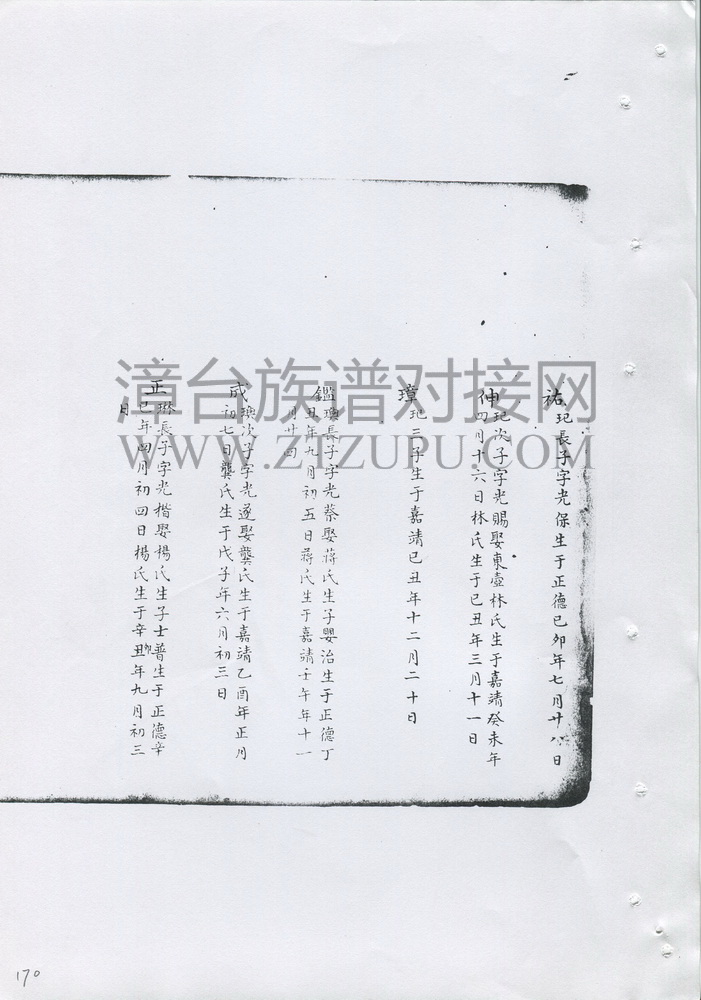 祐玘長子字光保生于正德己卯年七月廿八日
伸玘次子字光賜娶東壺林氏生于嘉靖癸未年
四月十六日林氏生于己丑年三月十一日
璋玘三子生于嘉靖己丑年十二月二十日
鑑璵長子字光蔡娶蔣氏生子嬰治生于正德丁
丑年九月初五日蔣氏生于嘉靖壬午年十一
月廿四
成璵次子字光遂娶龔氏生于嘉靖乙酉年正月
初七日龔氏生于戊子年六月初三日
正琳長子字光楷娶楊氏生子士普生于正德辛
巳年四月初四日楊氏生于辛丑年九月初三
日
漳台族谱对接网
WWW.ZTZUPU.COM
170